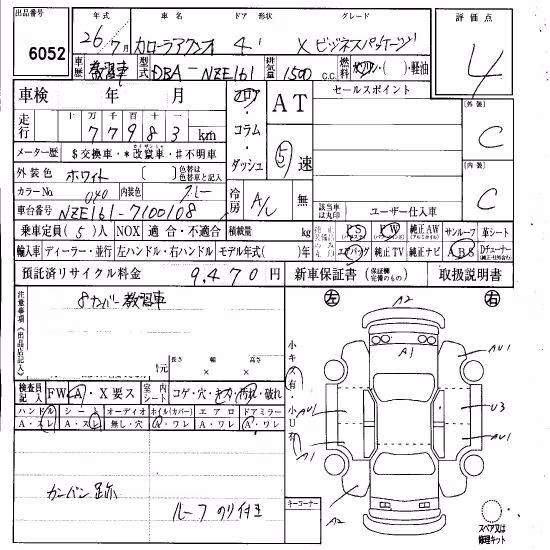 出品番号 年式 車名 ドア 形状 グレード 評価点
6052 26年7月 カローラアクシオ 4' X ビジネスパッケージ 4
車歴 教習車 型式 DBA-NZE161 排気量 1500 c.c. 燃料 ガソリン・( )・軽油
車検 年 月 フロア・コラム・ダッシュ AT 5速 セールスポイント 外装 C
走行 十万千百十 77983 km
メーター歴 $交換車・*改竄車・#不明車
外装色 ホワイト ( ) 色替は色替車と記入 内装 C
カラーNo. 040 内装色 グレー 冷房 A/C 無
車台番号 NZE161-7100108 該当車は丸印 ユーザー仕入車
乗車定員(5)人 NOX 適合・不適合 積載量 kg PS PW 純正AW サンルーフ 革シート
輸入車 ディーラー・並行 左ハンドル・右ハンドル モデル年式( )年 エアバッグ 純正TV 純正ナビ ABS Dチューナー
預託済リサイクル料金 9,470円 新車保証書 (保証継続可能のもの) 取扱説明書
注意事項(出品店記入)
8ナンバー教習車
左 右
A2
A1
AU1
小キズ有・小U有
長さ 幅 高さ
検査員記入 FW A・X要ス 室内シート コゲ・穴・キズ・汚れ・破れ
ハンドル シート オーディオ ホイル(カバー) エアロ ドアミラー
A・スレ A・スレ 無し・穴 A・ワレ A・ワレ A・ワレ
AU1 U3
AU1
カンバン跡
ルーフ のり付き
キーコーナー
A2
スペア又は修理キット